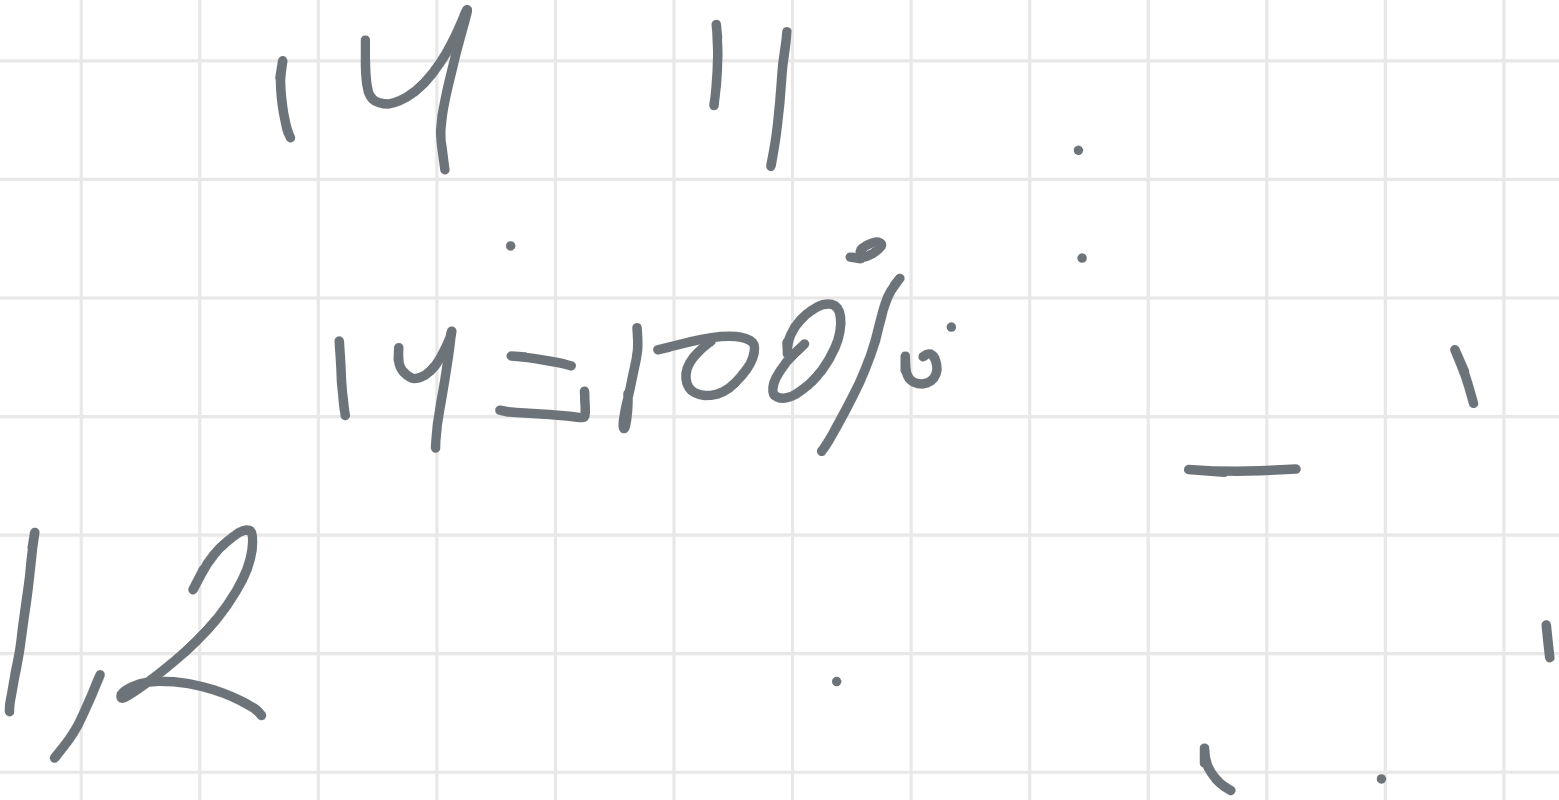 14 11
14=100%
1,2